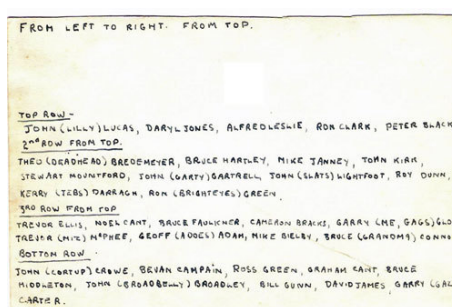 FROM LEFT TO RIGHT. FROM TOP.
TOP ROW -
JOHN (LILLY) LUCAS, DARYL JONES, ALFRED LESLIE, RON CLARK, PETER BLACK
2nd ROW FROM TOP.
THEO (DEADHEAD) BREDEMEYER, BRUCE HARTLEY, MIKE JANNEY, TOHN KIRK,
STEWART MOUNTFORD, JOHN (GARTY) GARTRELL, JOHN (SLATS) LIGHTFOOT, ROY DUNN,
KERRY (JEBS) DARRAGH, RON (BRIGHTEYES) GREEN.
3RD ROW FROM TOP
TREVOR ELLIS, NOEL CANT, BRUCE FAULKNER, CAMERON BRACKS, GARRY (ME, GAGS) GLO
TREVOR (MCC) McPHEE, GEOFF (ADDES) ADAM, MIKE BIELBY, BRUCE (GRANDMA) CONNO
BOTTOM ROW
JOHN (CORTUP) CROWE, BEVAN CAMPAIN, ROSS GREEN, GRAHAM CANT, BRUCE
MIDDLETON, JOHN (BROADBELLY) BROADLEY, BILL GUNN, DAVID JAMES, GARRY (GAL
CARTER.